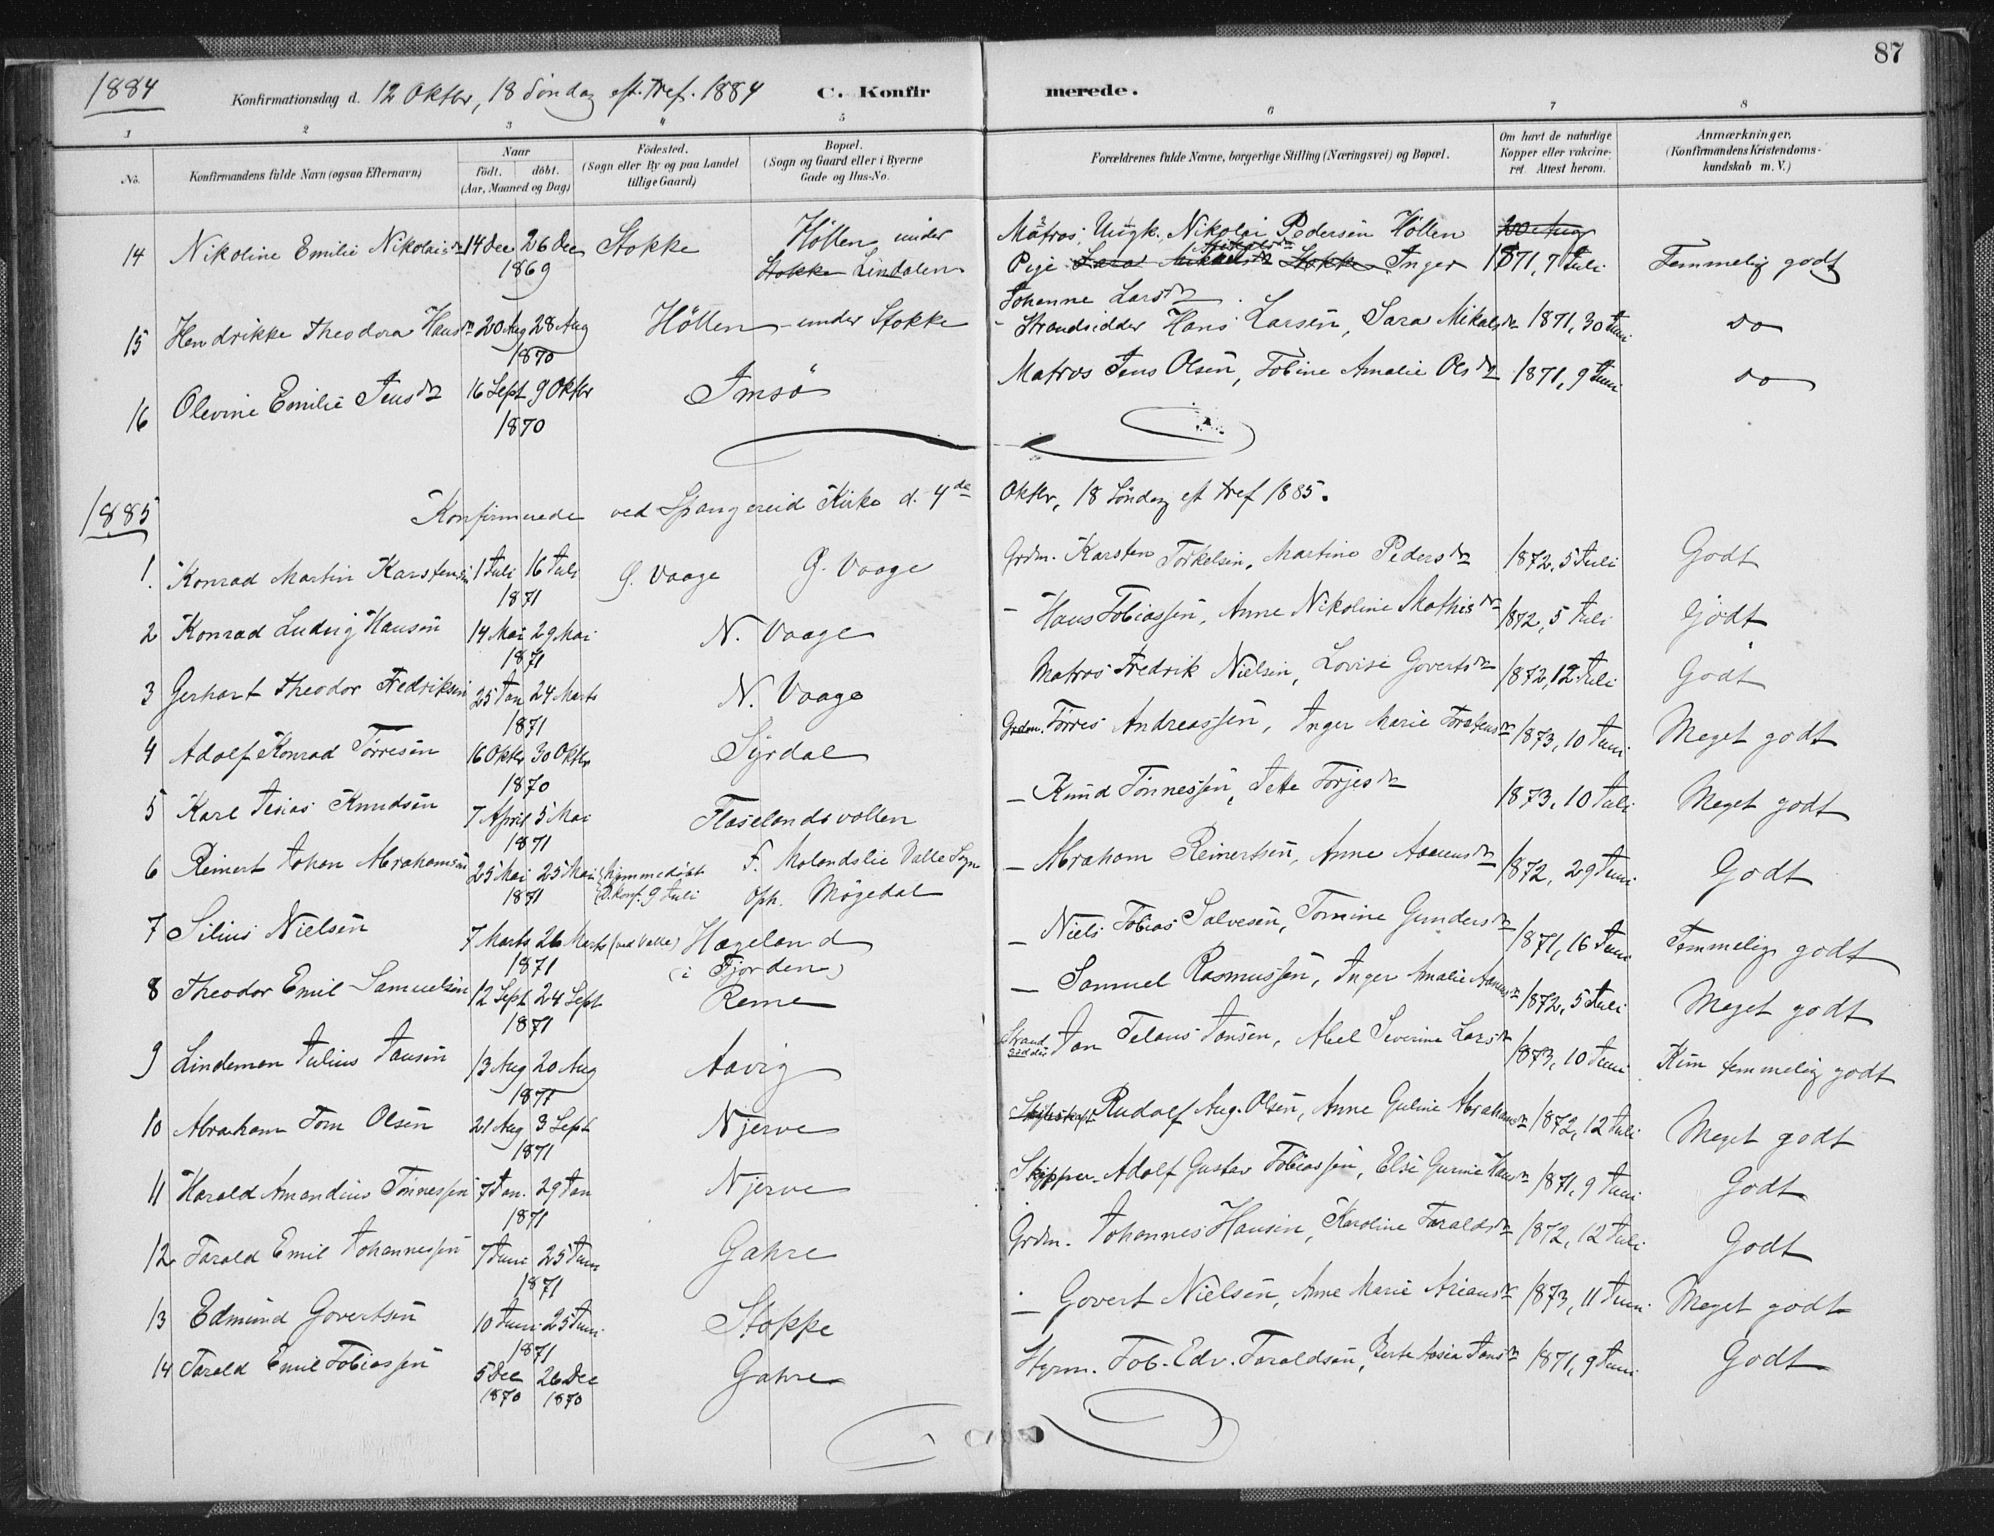 87
1884 Konfirmationsdag d. 12 Oktbr, 18 Söndag eft. Tref. 1884 C. Konfirmerede.
1 2 3 4 5 6 7 8
No. Konfirmandens fulde Navn (ogsaa Efternavn) Naar födt. döbt. (Aar, Maaned og Dag) Födested. (Sogn eller By og paa Landet tillige Gaard) Bopæl. (Sogn og Gaard eller i Byerne Gade og Hus-No. Forældrenes fulde Navne, borgerlige Stilling (Næringsvei) og Bopæl. Om havt de naturlige Kopper eller vakcineret. Attest herom. Anmærkninger. (Konfirmandens Kristendomskundskab m. V.)
14 Nikoline Emilie Nikolaisdn 14 Dec 26 Dec 1869 Stokke Höllen under Stokke Lindalen Matros Ungk. Nikolai Pedersen Höllen Pige Sara Mikalsdn Stokke Inger Johanne Larsdn 1871, 7 Juli Temmelig godt
15 Hendrikke Theodora Hansdn 20 Aug 28 Aug 1870 Höllen under Stokke - Strandsidder Hans Larsen, Sara Mikalsdn 1871, 30 Juni do
16 Olevine Emilie Jensdn 16 Sept 9 Oktbr 1870 Imsö Matros Jens Olsen, Tobine Amalie Olsdn 1871, 9 Juni do
1885 Konfirmerede ved Spangereid Kirke d. 4de Oktbr, 18 Söndag eft Tref 1885.
1. Konrad Martin Karstensen 1 Juli 16 Juli 1871 G. Vaage G. Vaage Grdm. Karsten Torkelsen, Martine Pedersdn 1872, 5 Juli Godt
2 Konrad Ludvig Hansen 14 Mai 29 Mai 1871 N. Vaage - Hans Tobiassen, Anne Nikoline Mathisdn 1872, 5 Juli Godt
3 Gerhart Theodor Fredriksen 25 Jan 24 Marts 1871 N. Vaage Matros Fredrik Nielsen, Lovise Govertsdn 1872, 12 Juli Godt
4 Adolf Konrad Törresen 16 Oktbr 30 Oktbr 1870 Syrdal Grdm. Törres Andreassen, Inger Marie 1873, 10 Juni Meget godt
5 Karl Knudsen 7 April 5 Mai 1871 Flaselandsvollen - Knud Tönnessen, Jette Torjesdn 1873, 10 Juli Meget godt
6 Reinert Johan Abrahamsen 25 Mai 25 Mai 1871 hjemmedöbt 9 Juli F. Molandslie Valle Sogn Oph. Mögedal - Abraham Reinertsen, Anne Aanensdn 1872, 29 Juni Godt
7 Silius Nielsen 7 Marts 26 Marts 1871 (ved Valle) Hægeland (i Fjorden) - Niels Tobias Salvesen, Tomine Gundersdn 1871, 16 Juni Temmelig godt
8 Theodor Emil Samuelsen 12 Sept 24 Sept 1871 Reme - Samuel Rasmussen, Inger Amalie 1872, 5 Juli Meget godt
9 Lindeman Julius Jansen 13 Aug 20 Aug 1871 Aavig Strandsidder Jan Telaus Jansen, Abel Severine Larsdn 1873, 10 Juni Kun temmelig godt
10 Abraham Tom Olsen 21 Aug 3 Sept 1871 Njerve Rudolf Aug. Olsen, Anne Guline Abrahamsdn 1872, 12 Juli Meget godt
11 Harald Amandius Tönnessen 7 Jan. 29 Jan 1871 Njerve Skipper Adolf Gustav Tobiassen, Else Gurine Hansdn 1871, 9 Juni Godt
12 Tarald Emil Johannessen 7 Juni 25 Juni 1871 Gahre Grdm. Johannes Hansen, Karoline Taraldsdn 1872, 12 Juli Godt
13 Edmund Govertsen 10 Juni 25 Juni 1871 Stokke - Govert Nielsen, Anne Marie Ariansdn 1873, 11 Juni Meget godt
14 Tarald Emil Tobiassen 5 Dec 1870 26 Dec 1870 Gahre Styrm. Tob. Edv. Taraldsen, Berte Asia Jansdn 1871, 9 Juni Godt